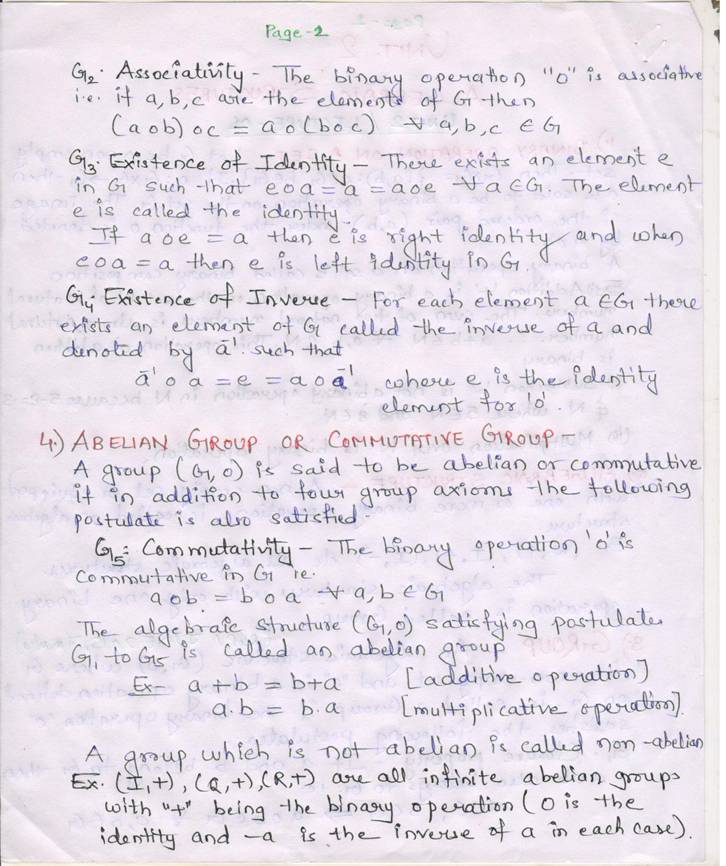 Page-2
G₂: Associativity - The binary operation "o" is associative
i.e. if a, b, c are the elements of G then
(aob) oc = ao(boc) ∀ a, b, c ∈ G
G₃: Existence of Identity - There exists an element e
in G such that eoa = a = aoe ∀ a ∈ G. The element
e is called the identity.
If aoe = a then e is right identity and when
eoa = a then e is left identity in G.
G₄: Existence of Inverse - For each element a ∈ G there
exists an element of G called the inverse of a and
denoted by a⁻¹ such that
a⁻¹ o a = e = a o a⁻¹ where e is the identity
element for 'o'.
4.) ABELIAN GROUP OR COMMUTATIVE GROUP-
A group (G, o) is said to be abelian or commutative
if in addition to four group axioms the following
postulate is also satisfied-
G₅: Commutativity - The binary operation 'o' is
commutative in G ie.
aob = boa ∀ a, b ∈ G
The algebraic structure (G, o) satisfying postulates
G₁ to G₅ is called an abelian group
Ex- a+b = b+a [additive operation]
a.b = b.a [multiplicative operation].
A group which is not abelian is called non-abelian
Ex. (I,+), (Q,+), (R,+) are all infinite abelian groups
with "+" being the binary operation (0 is the
identity and -a is the inverse of a in each case).